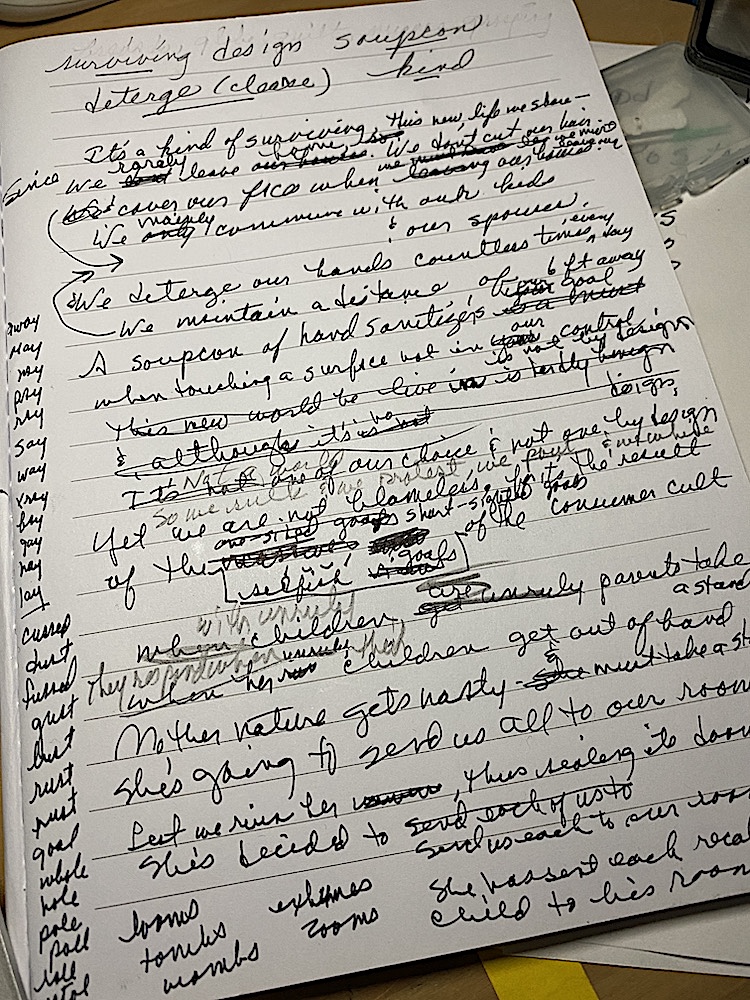 surviving design soupcon
deterge (cleanse) kind
It's a kind of surviving, this new life we share—
Since We rarely leave home,
We cover our face when we
We mainly only commune with our kids
& our spouses.
We deterge our hands countless times every day
We maintain a distance of 6 ft away
A soupcon of hand sanitizer,
when touching a surface not in our control
This new world we live in is hardly benign
& although it's not
It's not one of our choice & not one by design
So we sulk & we protest, we pout & we whine
Yet we are not blameless. It's the result
of the short-sighted goals
selfish goals of the consumer cult
with unruly
when children, are unruly parents take a stand
they respond when
when her children get out of hand
Mother nature gets nasty - & she must take a stand
She's going to send us all to our room
Lest we ruin her, thus sealing its doom
She's decided to send each of us to
send us each to our room
She has sent each
child to his room
away
day
may
pay
ray
say
way
bay
gay
hay
lay
cussed
dust
fussed
gust
lust
rust
must
goal
whole
hole
pole
poll
role
looms
tombs
wombs
exhumes
zooms